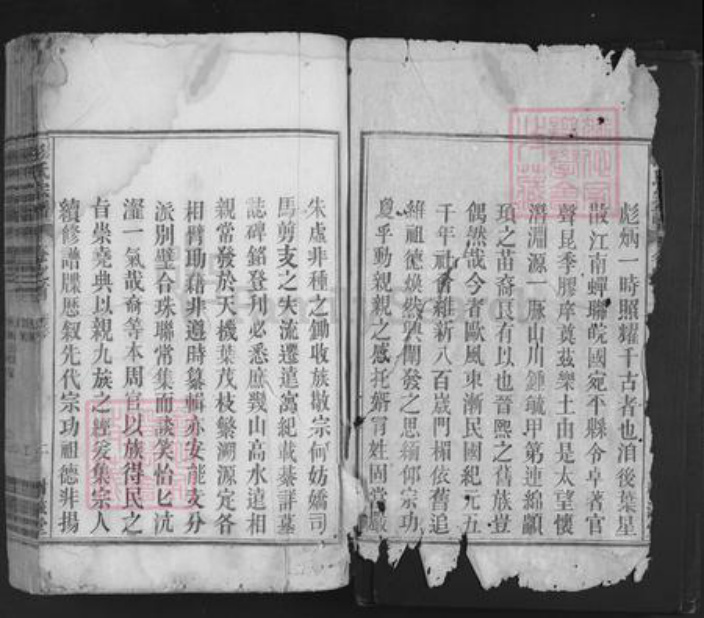 彪炳一時照耀千古者也洎後葉星
散江南蟬聯皖國宛平縣令卓著官
聲昆季膠庠奠茲樂土由是太望懷
潛淵源一脉山川鍾毓甲第連綿顓
頊之苗裔良有以也晉熙之舊族豈
偶然哉今者歐風東漸民國紀元五
千年社會維新八百歲門楣依舊追
維祖德煥然興闡發之思緬仰宗功
夏乎動親親之感托
姓固當嚴
朱虛非種之鋤收族敬宗何妨嬌司
馬剪支之失流遷遠寓紀載綦詳墓
誌碑銘登刋必悉庶幾山高水遠相
親常發於天機葉茂枝繁溯源定各
相臂助藉非遵時纂輯亦安能支分
派別璧合珠聯常集而談笑怡匕沆
瀣一氣哉裔等本周官以族得民之
旨崇堯典以親九族之經爰集宗人
續修譜牒歷叙先代宗功祖德非揚